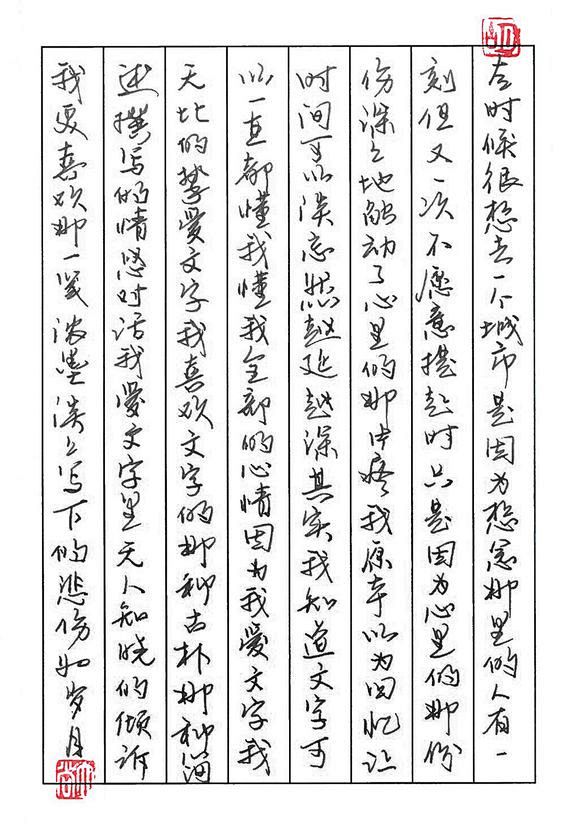 有时候很想去一个城市是因为想念那里的人有一
刻但又一次不愿意提起时只是因为心里的那份
伤深深地触动了心里的那疼我原本以为回忆让
时间可以淡忘然越延越深其实我知道文字可
以一直都懂我懂我全部的心情因为我爱文字我
无比的挚爱文字我喜欢文字的那种古朴那种
述撰写的情愁对话我爱文字里无人知晓的倾诉
我更喜欢那一笔浓墨淡淡写下的悲伤如岁月